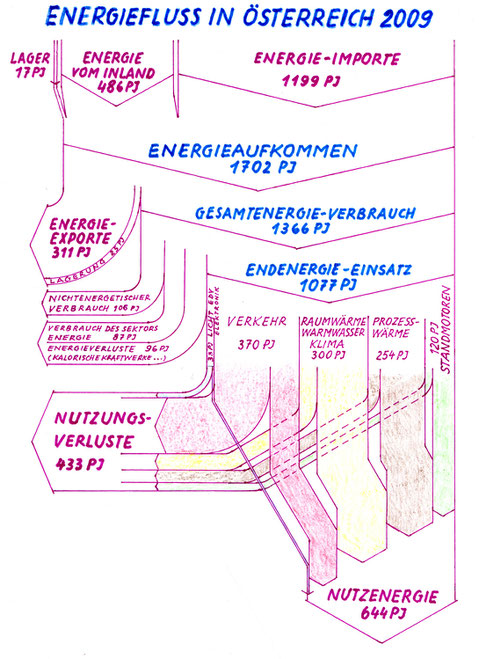 ENERGIEFLUSS IN ÖSTERREICH 2009
LAGER
17 PJ
ENERGIE
VOM INLAND
486 PJ
ENERGIE-IMPORTE
1199 PJ
ENERGIEAUFKOMMEN
1702 PJ
ENERGIE-
EXPORTE
311 PJ
GESAMTENERGIE-VERBRAUCH
1366 PJ
LAGERUNG 25 PJ
ENDENERGIE-EINSATZ
1077 PJ
NICHTENERGETISCHER
VERBRAUCH 106 PJ
VERBRAUCH DES SEKTORS
ENERGIE 87 PJ
ENERGIEVERLUSTE 96 PJ
(KALORISCHE KRAFTWERKE...)
LICHT, EDV,
ELEKTRONIK
VERKEHR
370 PJ
RAUMWÄRME
WARMWASSER
KLIMA
300 PJ
PROZESS-
WÄRME
254 PJ
120 PJ
STANDMOTOREN
NUTZUNGS-
VERLUSTE
433 PJ
NUTZENERGIE
644 PJ